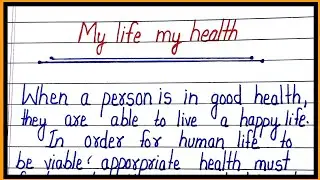 My life my health
When a person is in good health,
they are able to live a happy life.
In order for human life to
be viable' apporpriate health must